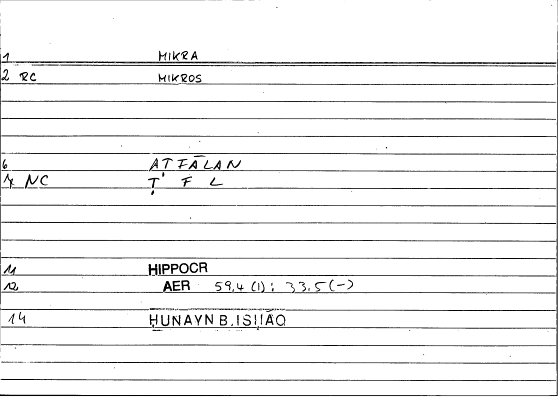 1 MIKRA
2 RC MIKROS
6 AṬFĀLAN
7 NC Ṭ F L
11 HIPPOCR
12 AER 59.4 (1) ; 33.5 (-)
14 ḤUNAYN B. ISḤĀQ